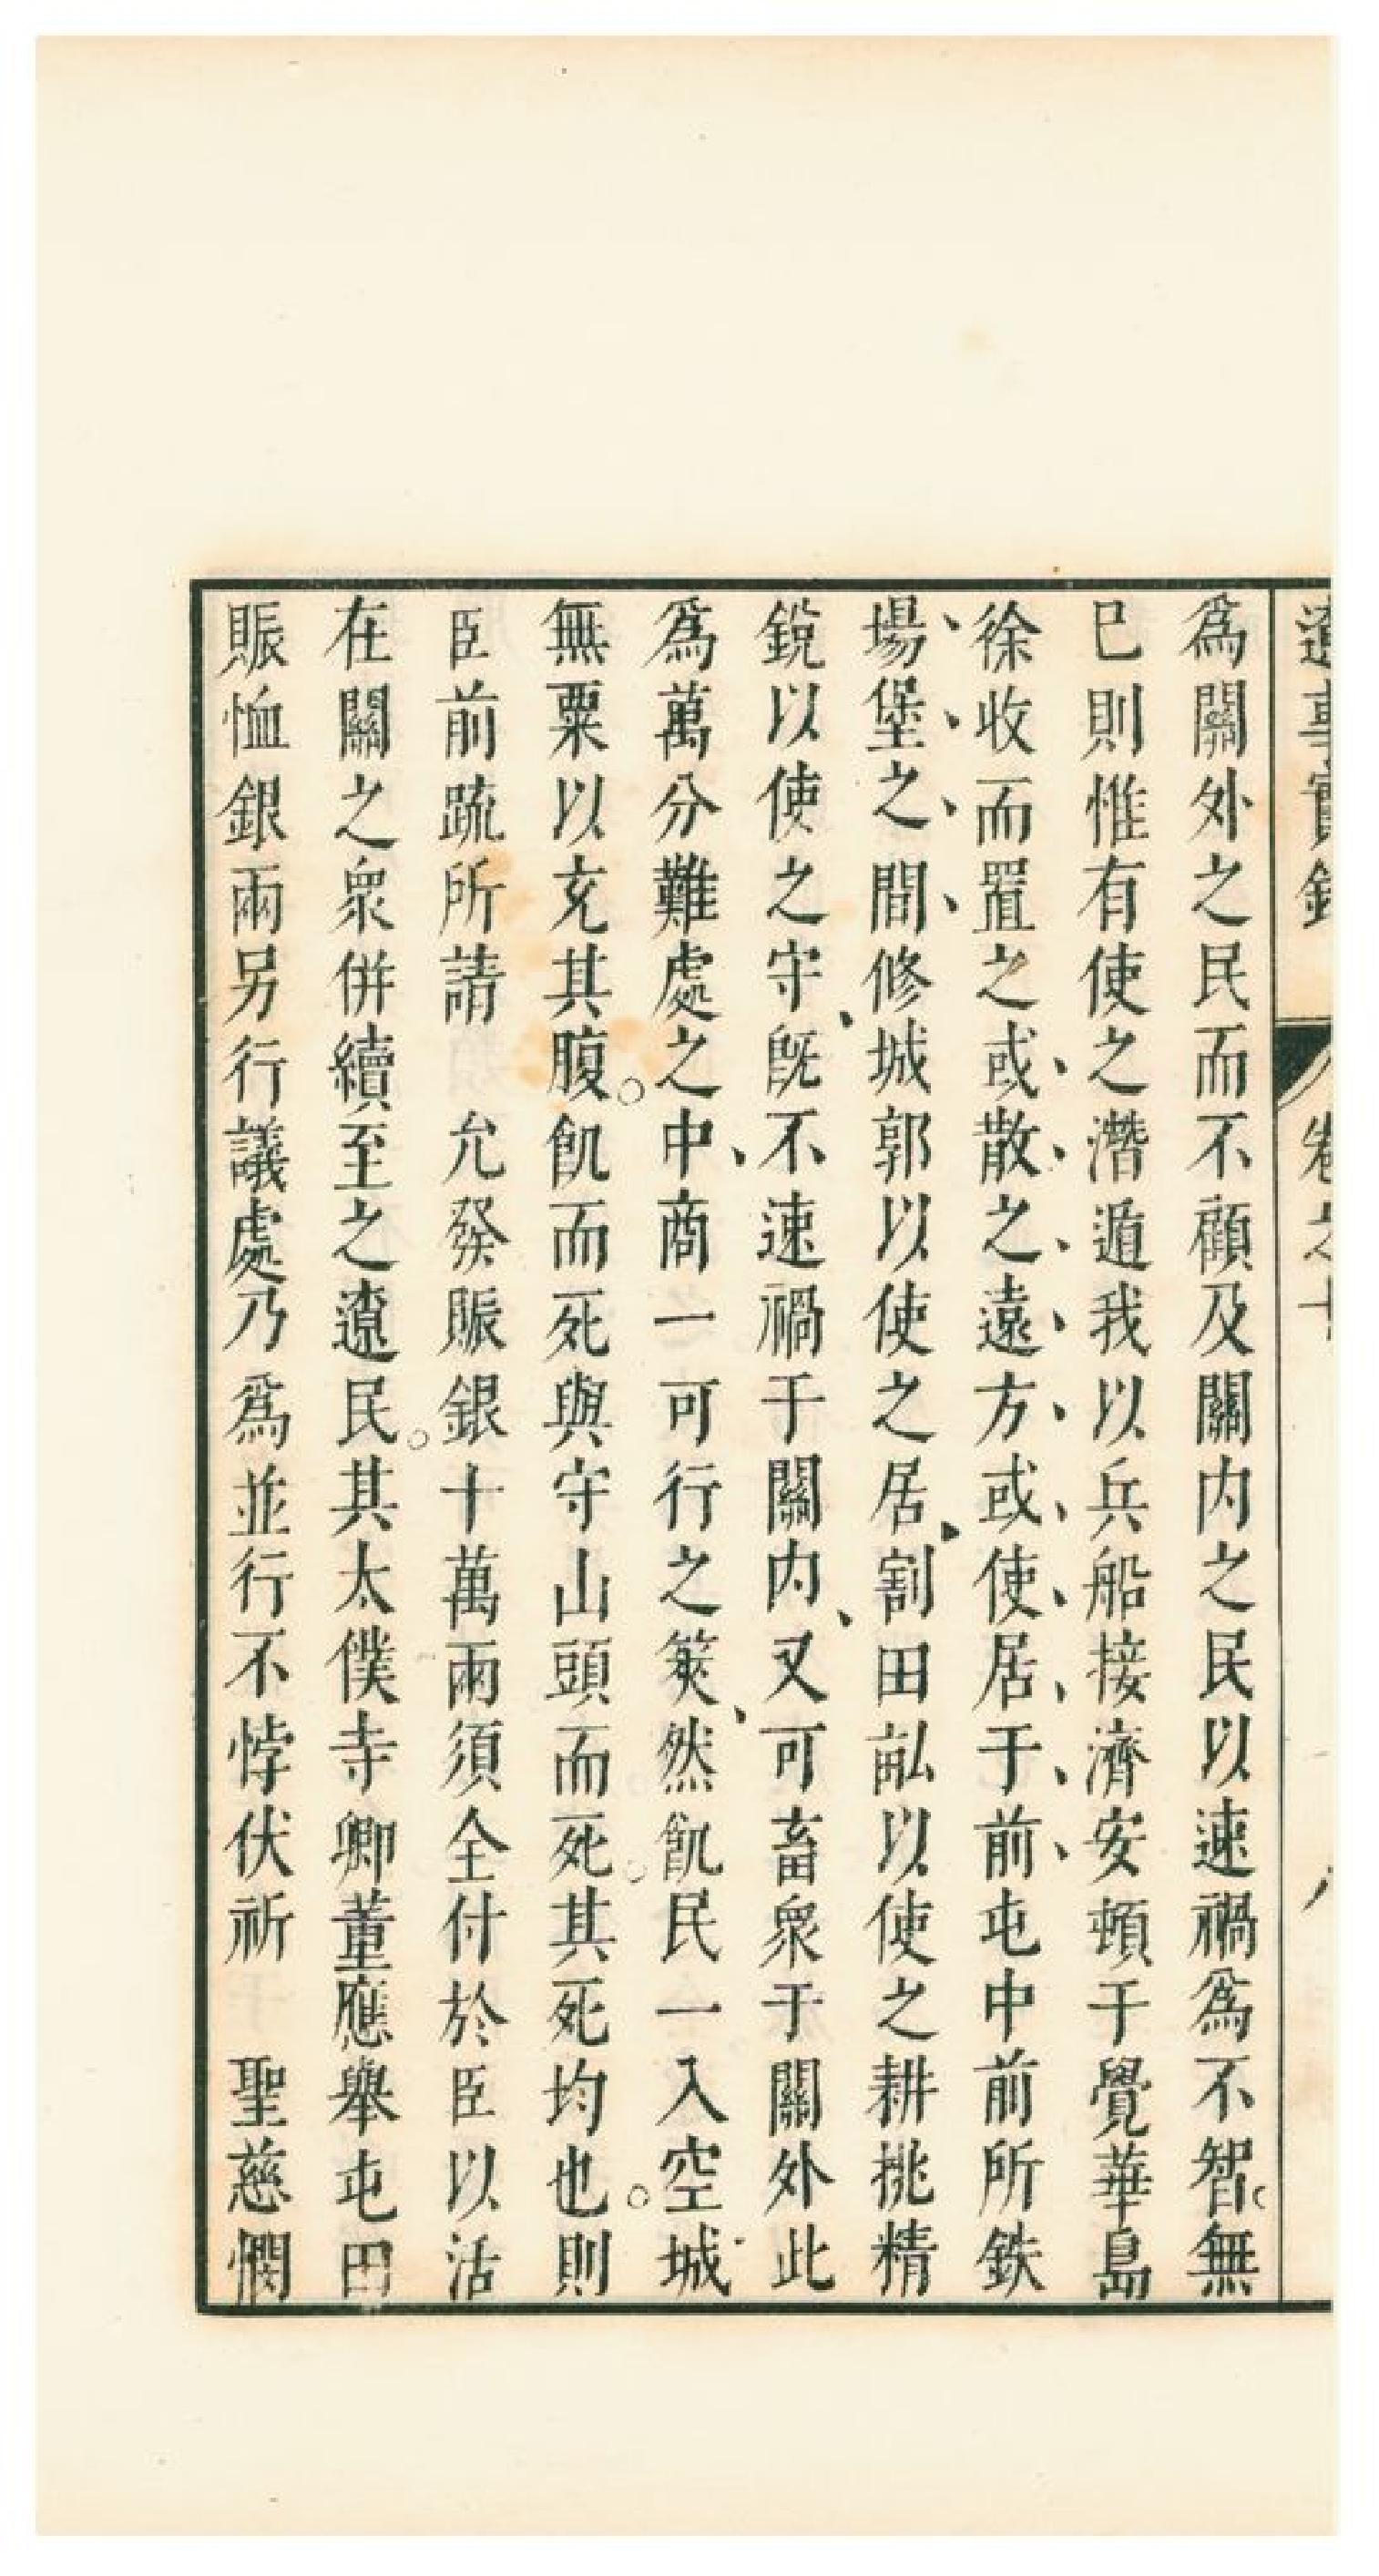 爲關外之民而不顧及關内之民以速禍爲不智無
已則惟有使之濳遁我以兵船接濟安頓于覺華島
徐收而置之或散之遠方或使居于前屯中前所鉄
場堡之間修城郭以使之居割田畆以使之耕挑精
銳以使之守旣不速禍于關内又可畜衆于關外此
爲萬分難處之中商一可行之筴然飢民一入空城
無粟以充其腹飢而死與守山頭而死其死均也則
臣前疏所請　允發賑銀十萬兩須全付於臣以活
在關之衆併續至之遼民其太僕寺卿董應舉屯田
賑恤銀兩另行議處乃爲並行不悖伏祈　聖慈憫